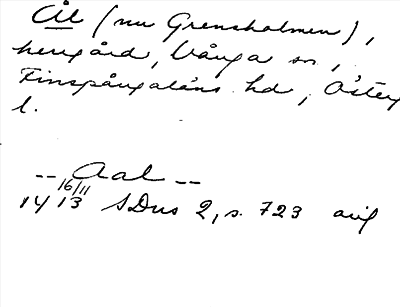 Ål (nu Grensholmen),
herrgård, Vånga sn,
Finspångaläns hd, Österg
l.
-- Aal --
16/11
1413 SDns 2, s. 723 avig